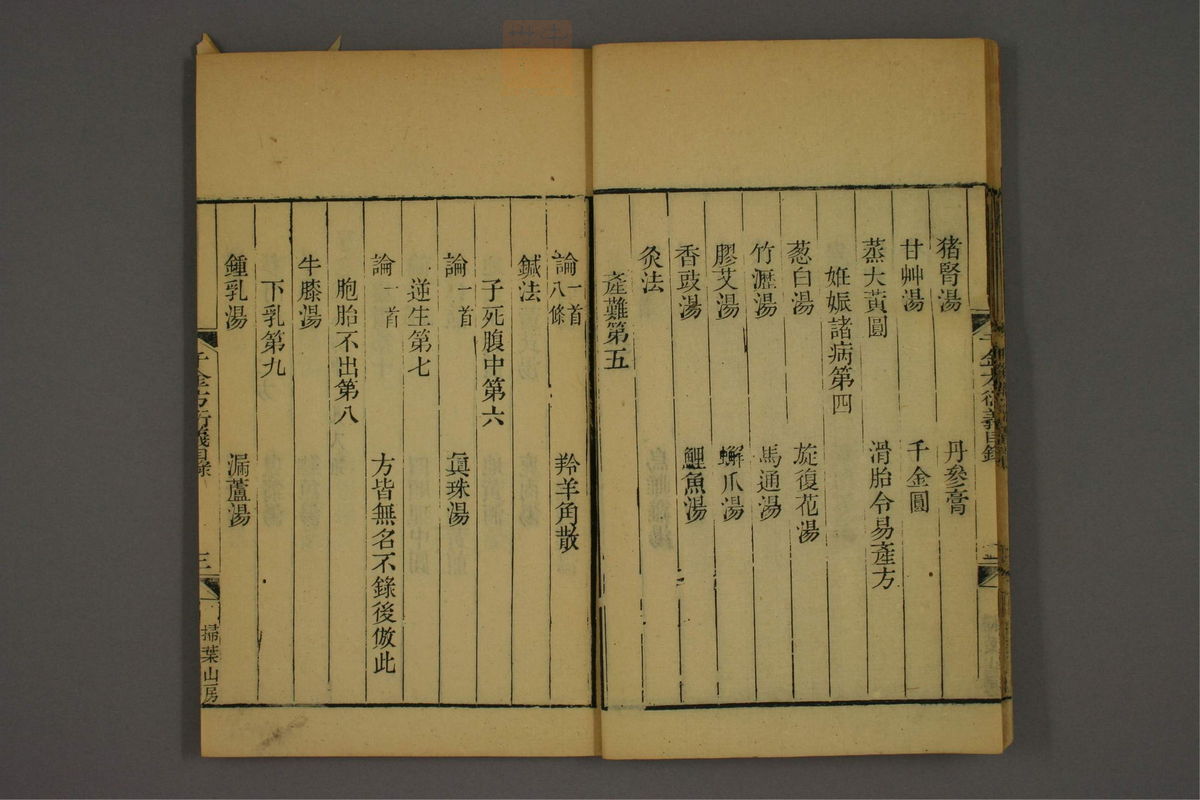 猪腎湯　丹參膏
甘艸湯　千金圓
蒸大黃圓　滑胎令易產方
姙娠諸病第四
葱白湯　旋復花湯
竹瀝湯　馬通湯
膠艾湯　蠏爪湯
香豉湯　鯉魚湯
灸法
產難第五
論一首八條　羚羊角散
鍼法
子死腹中第六
論一首　眞珠湯
逆生第七
論一首　方皆無名不錄後倣此
胞胎不出第八
牛膝湯
下乳第九
鍾乳湯　漏蘆湯
千金方衍義目錄　三　掃葉山房